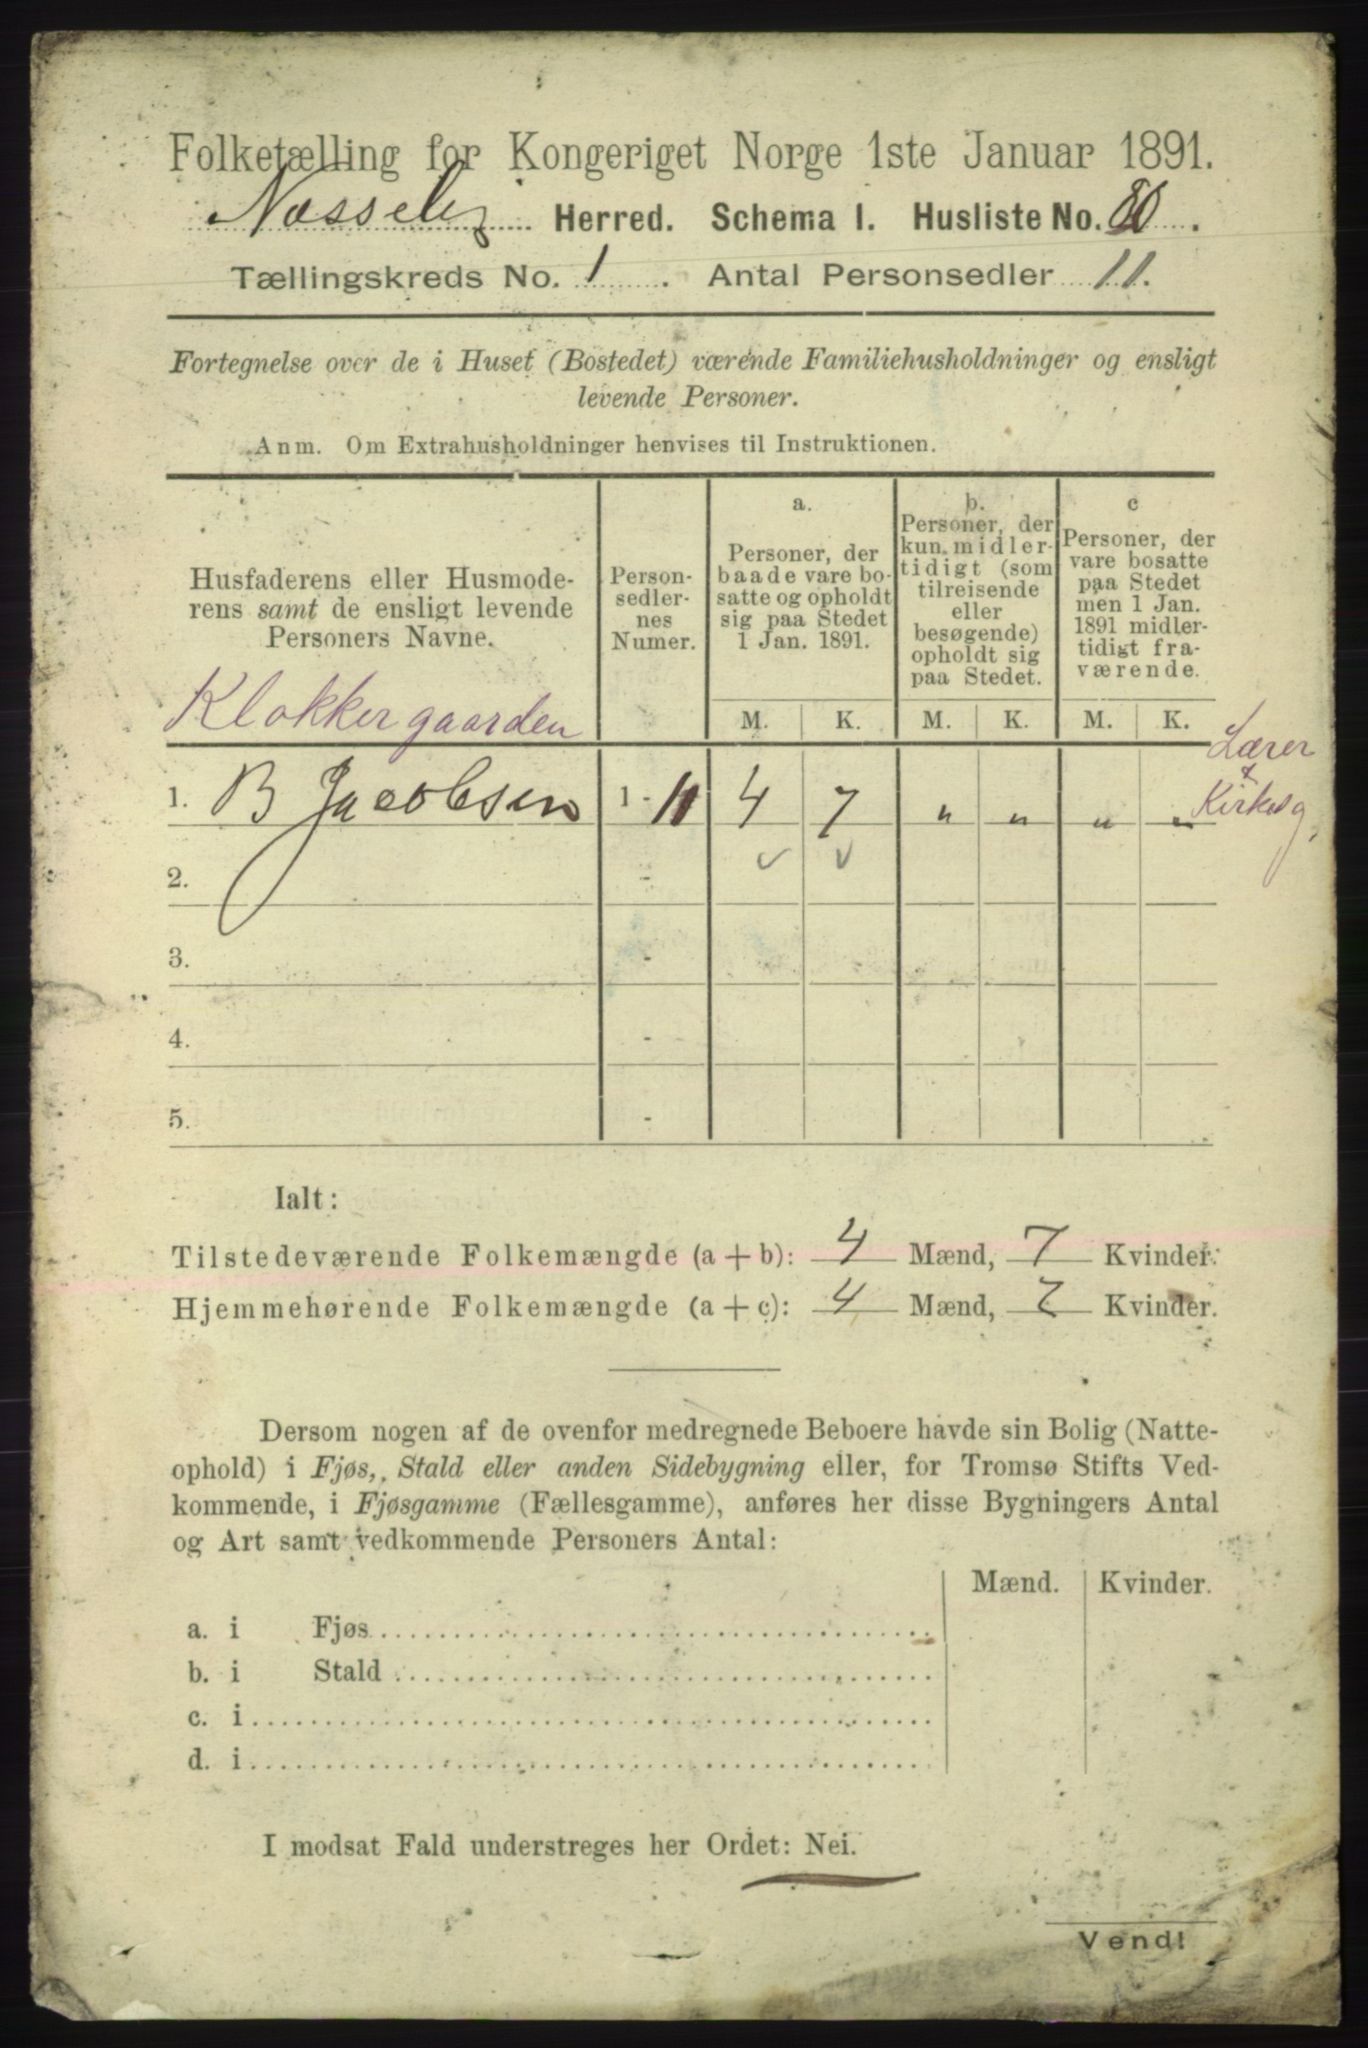 Folketælling for Kongeriget Norge 1ste Januar 1891.
Næsseby Herred. Schema I. Husliste No. 80.
Tællingskreds No. 1. Antal Personsedler 11.
Fortegnelse over de i Huset (Bostedet) værende Familiehusholdninger og ensligt
levende Personer.
Anm. Om Extrahusholdninger henvises til Instruktionen.
Husfaderens eller Husmode-
rens samt de ensligt levende
Personers Navne.
Klokkergaarden
Person-
sedler-
nes
Numer.
a.
Personer, der
baade vare bo-
satte og opholdt
sig paa Stedet
1 Jan. 1891.
b.
Personer, der
kun midler-
tidigt (som
tilreisende
eller
besøgende)
opholdt sig
paa Stedet.
c
Personer, der
vare bosatte
paa Stedet
men 1 Jan.
1891 midler-
tidigt fra-
værende.
M. K. M. K. M. K.
Lærer
&
Kirkesg,
1. B Jacobsen 1 - 11 4 7 " " " "
2. -
3. -
4. -
5. -
Ialt:
Tilstedeværende Folkemængde (a + b): 4 Mænd, 7 Kvinder.
Hjemmehørende Folkemængde (a + c): 4 Mænd, 7 Kvinder.
Dersom nogen af de ovenfor medregnede Beboere havde sin Bolig (Natte-
ophold) i Fjøs, Stald eller anden Sidebygning eller, for Tromsø Stifts Ved-
kommende, i Fjøsgamme (Fællesgamme), anføres her disse Bygningers Antal
og Art samt vedkommende Personers Antal:
Mænd. Kvinder.
a. i Fjøs
b. i Stald
c. i
d. i
I modsat Fald understreges her Ordet: Nei.
Vend!